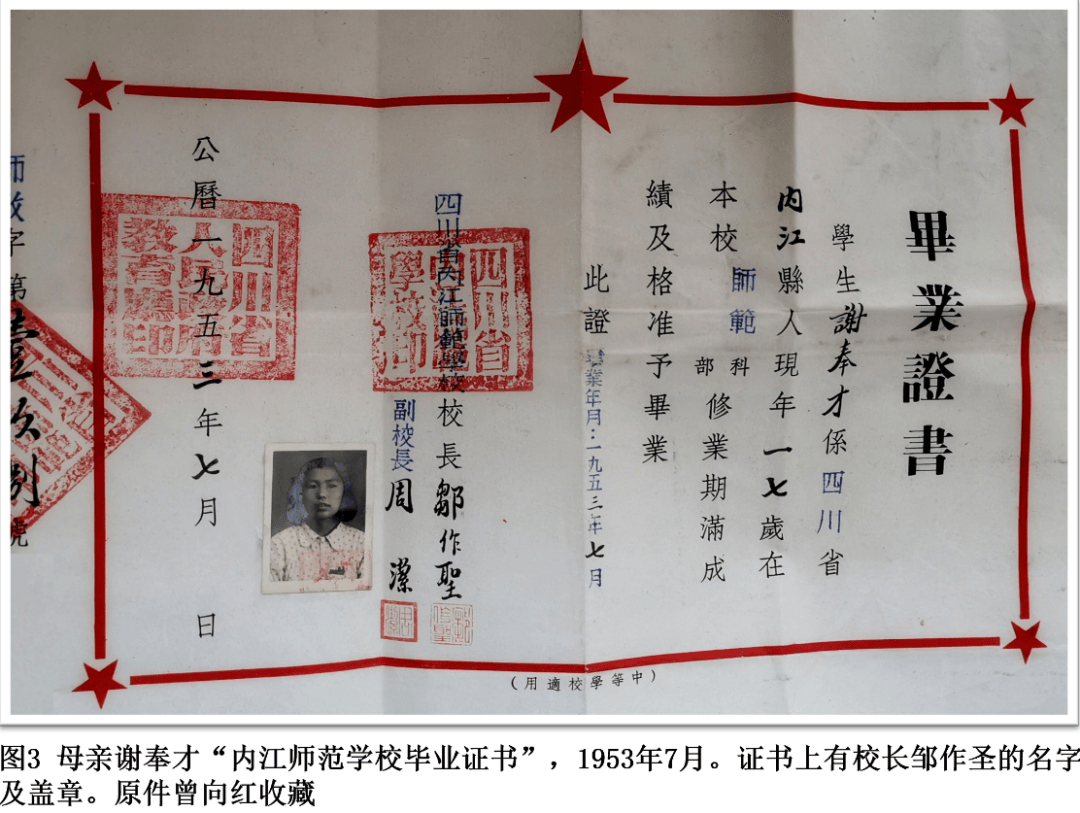 畢業證書
學生謝奉才係四川省
内江縣人現年一七歲在
本校師範科部修業期滿成
績及格准予畢業
此證
畢業年月：一九五三年七月
四川省内江師範學校校長鄒作聖
副校長周潔
公曆一九五三年七月 日
師教字第壹 號
四川省人民政府教育廳印
（中等學校適用）
图3 母亲谢奉才“内江师范学校毕业证书”，1953年7月。证书上有校长邹作圣的名字
及盖章。原件曾向红收藏